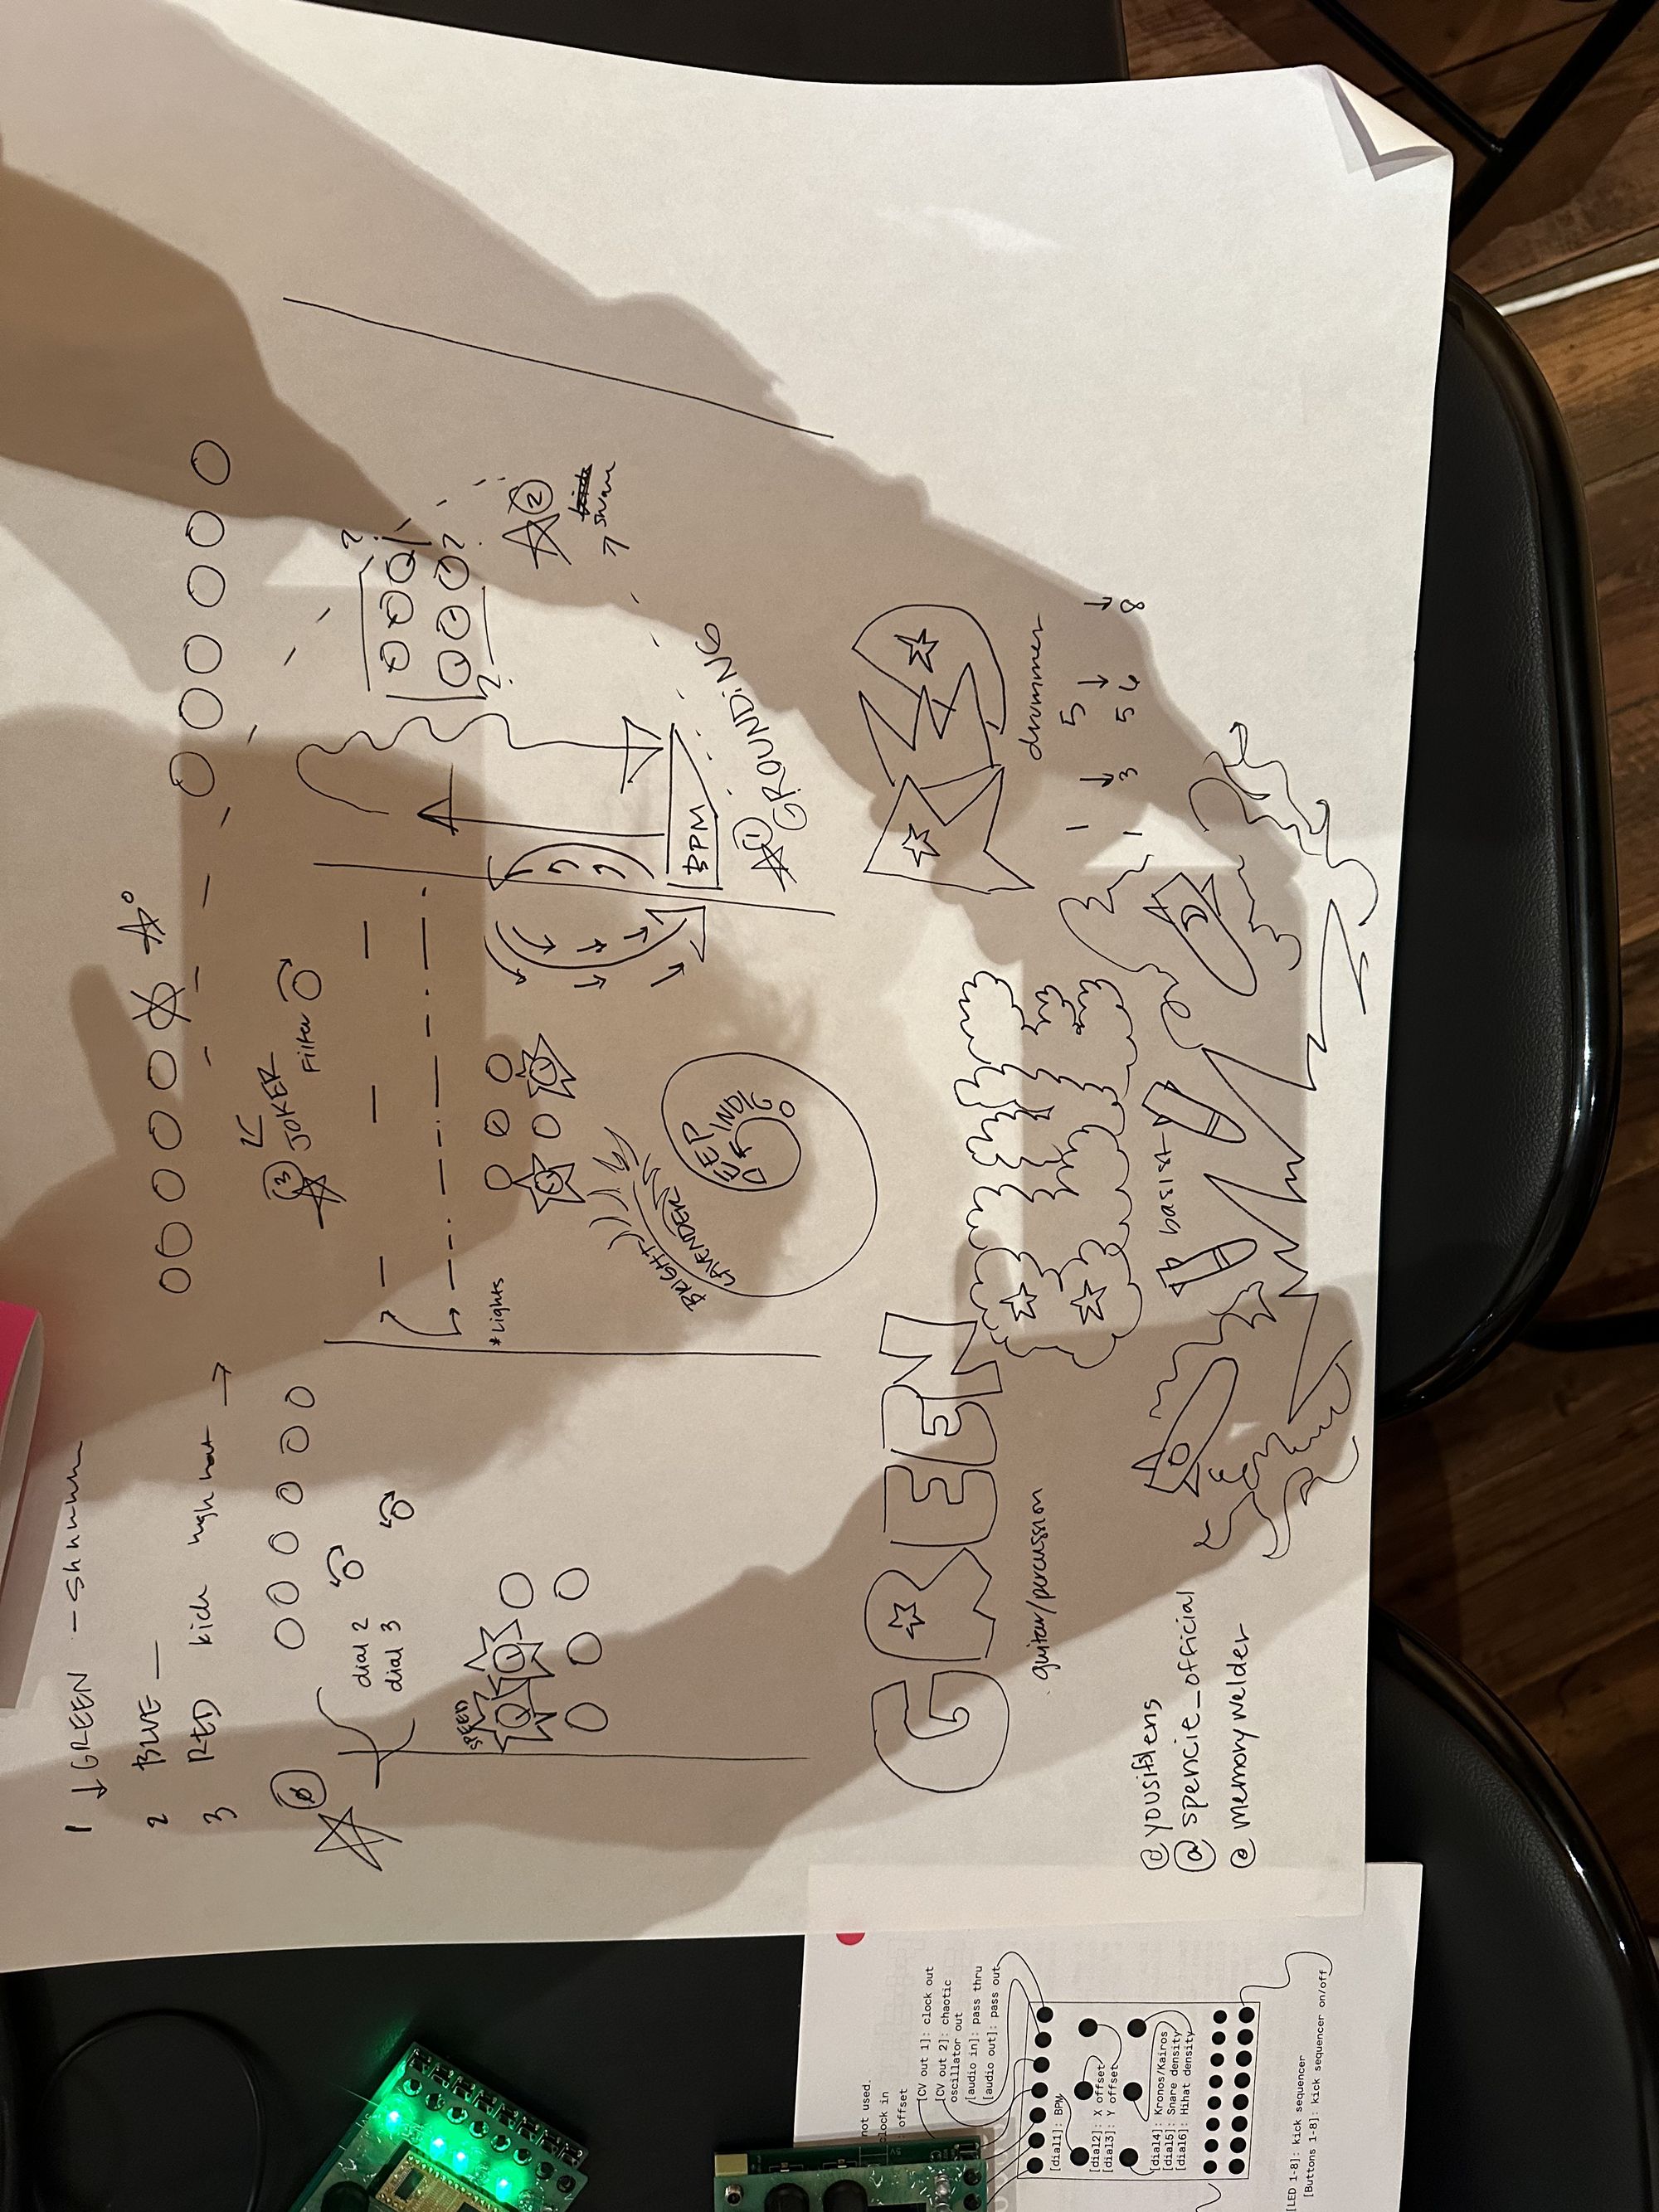 1 ↓ GREEN - Shhhhhh
2 BLUE —
3 RED kick high hat →
☆ 0
dial 2
dial 3
SPEED
☆ 3 JOKER
Filter
* Lights
BRIGHT
LAVENDER
DEEP
INDIGO
☆ 0
? ? ?
☆ 2
→ snare
BPM
☆ 1
GROUNDING
GREEN
guitar/percussion
basist
RED
drummer
1 5
1 3 5 6 8
@yousifslens
@spencie_official
@memorywelder
not used.
clock in
offset
[CV out 1]: clock out
[CV out 2]: chaotic
oscillator out
[audio in]: pass thru
[audio out]: pass out
[dial1]: BPM
[dial2]: X offset
[dial3]: Y offset
[dial4]: Kronos/Kairos
[dial5]: Snare density
[dial6]: Hihat density
[LED 1-8]: kick sequencer
[Buttons 1-8]: kick sequencer on/off